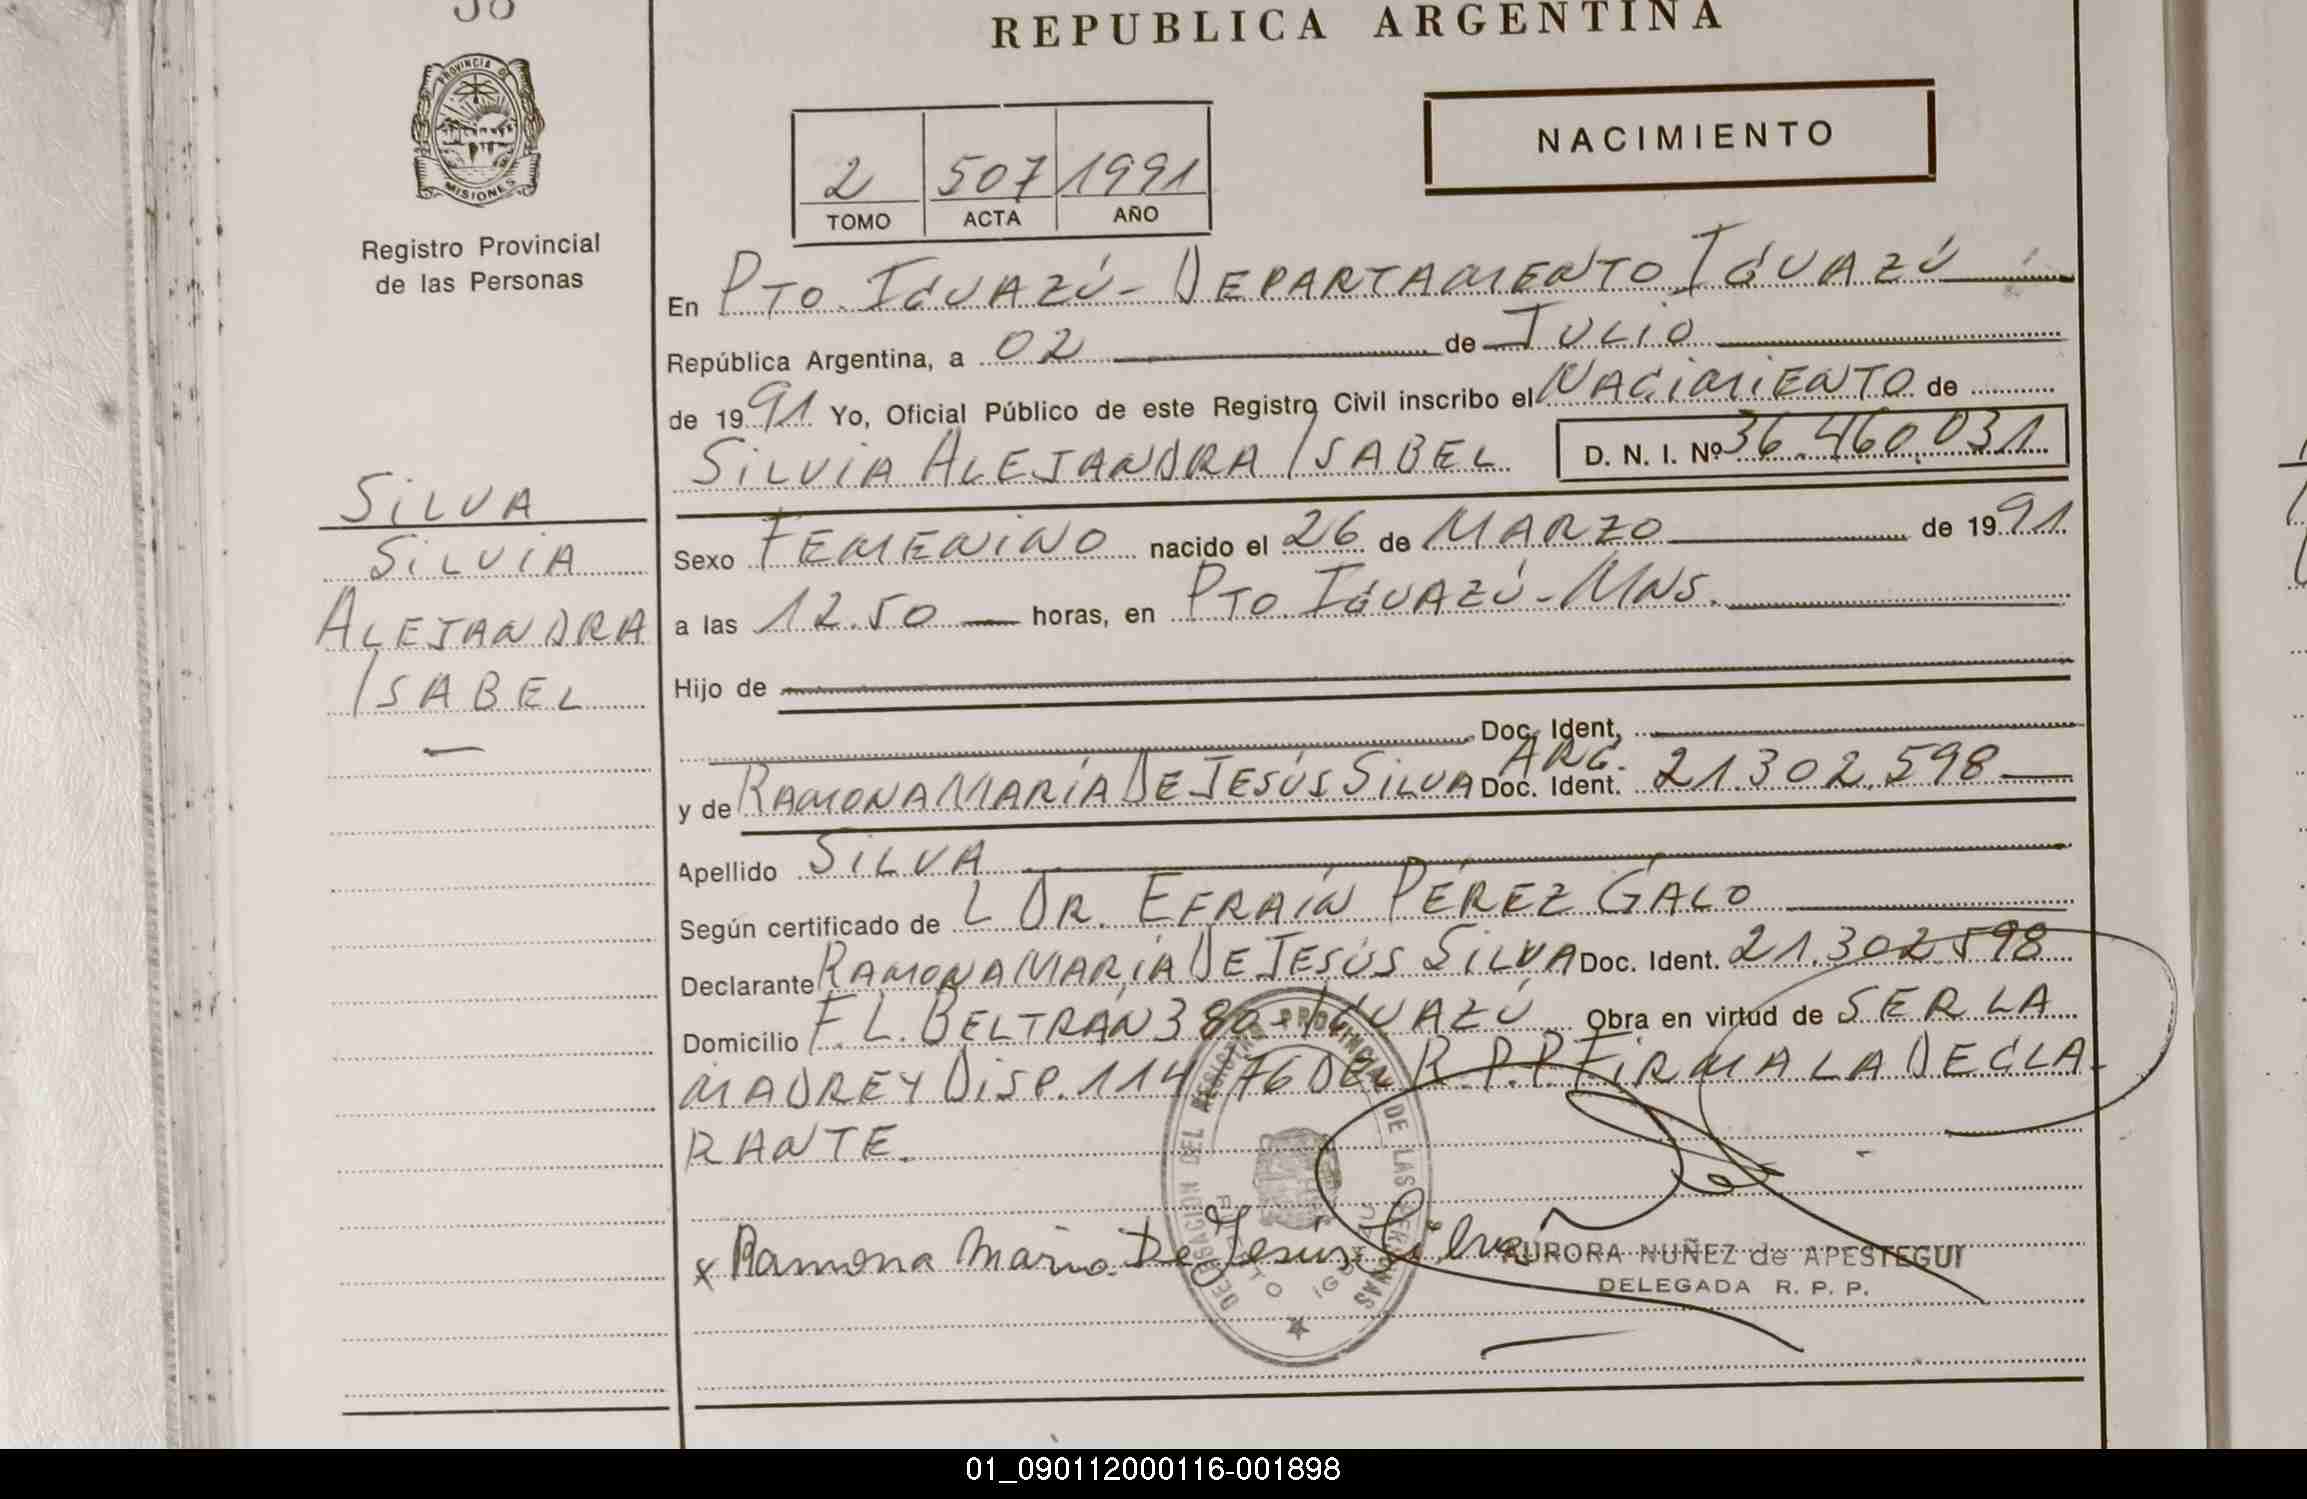 38
REPUBLICA ARGENTINA
PROVINCIA DE
MISIONES
Registro Provincial
de las Personas
2 507 1991
TOMO ACTA AÑO
NACIMIENTO
En PTO. IGUAZÚ - DEPARTAMENTO IGUAZÚ
República Argentina, a 02 de JULIO
de 1991 Yo, Oficial Público de este Registro Civil inscribo el NACIMIENTO de
SILVIA ALEJANDRA ISABEL D. N. I. Nº 36.460.031
SILVA
SILVIA
ALEJANDRA
ISABEL
Sexo FEMENINO nacido el 26 de MARZO de 1991
a las 12.50 horas, en PTO. IGUAZÚ - MNS.
Hijo de
Doc. Ident.
y de RAMONA MARÍA DE JESÚS SILVA Doc. Ident. ARG. 21.302.598
Apellido SILVA
Según certificado de L DR. EFRAÍN PÉREZ GALO
Declarante RAMONA MARÍA DE JESÚS SILVA Doc. Ident. 21.302.598
Domicilio F. L. BELTRÁN 380 - IGUAZÚ Obra en virtud de SER LA
MADRE Y DISP. 114 76 DEL R.P.P. FIRMA LA DECLA-
RANTE.
DELEGACION DEL REGISTRO PROVINCIAL DE LAS PERSONAS
PUERTO IGUAZU
x Ramona Maria De Jesús Silva
AURORA NUÑEZ de APESTEGUI
DELEGADA R. P. P.
01_090112000116-001898